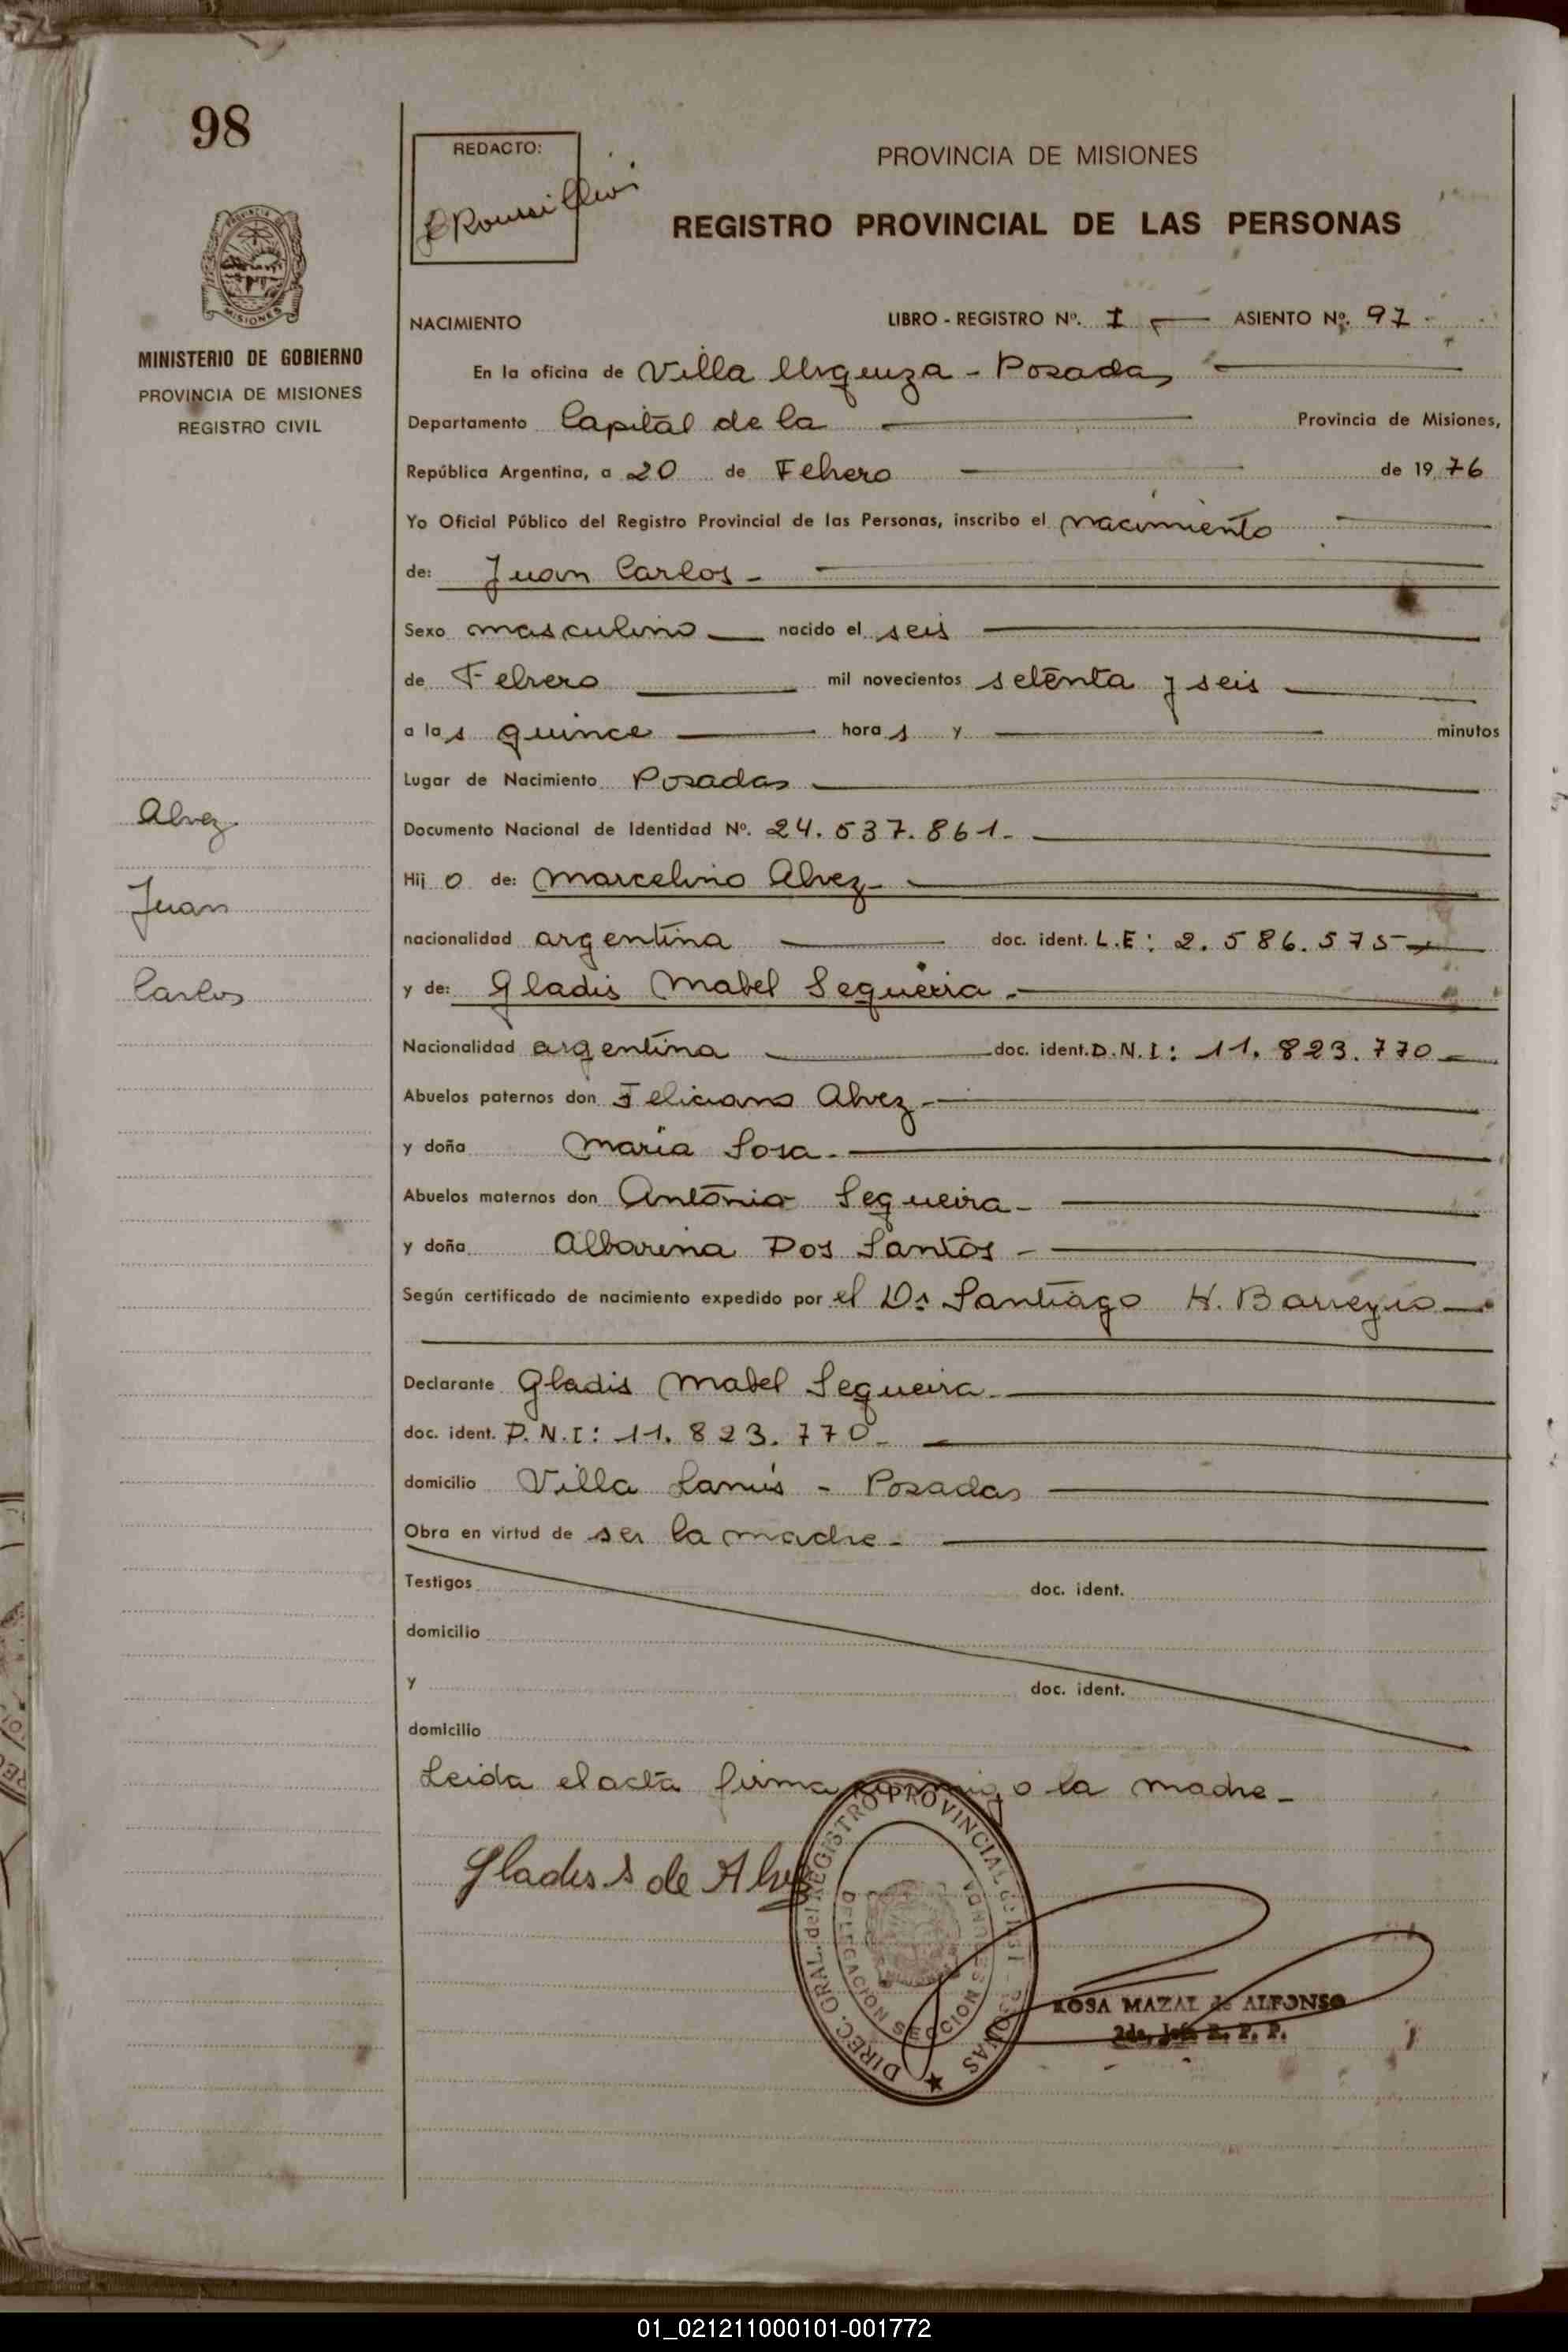 98
REDACTO:
PROVINCIA DE MISIONES
REGISTRO PROVINCIAL DE LAS PERSONAS
MISIONES
MINISTERIO DE GOBIERNO
PROVINCIA DE MISIONES
REGISTRO CIVIL
NACIMIENTO LIBRO - REGISTRO Nº. I ASIENTO Nº. 97
En la oficina de Villa Urquiza - Posadas
Departamento Capital de la Provincia de Misiones,
República Argentina, a 20 de Febrero de 1976
Yo Oficial Público del Registro Provincial de las Personas, inscribo el nacimiento
de: Juan Carlos -
Sexo masculino nacido el seis
de Febrero mil novecientos setenta y seis
a las quince horas y minutos
Lugar de Nacimiento Posadas
Alvez
Documento Nacional de Identidad Nº. 24.537.861.-
Hijo de: Marcelino Alvez-
Juan
nacionalidad argentina doc. ident. L.E: 2.586.575
Carlos
y de: Gladis Mabel Sequeira.-
Nacionalidad argentina doc. ident. D.N.I: 11.823.770-
Abuelos paternos don Feliciano Alvez-
y doña María Sosa.-
Abuelos maternos don Antonio Sequeira-
y doña Albarina Dos Santos -
Según certificado de nacimiento expedido por el Dr Santiago H.
Declarante Gladis Mabel Sequeira.-
doc. ident. D.N.I: 11.823.770-
domicilio Villa Lanús - Posadas
Obra en virtud de ser la madre-
Testigos doc. ident.
domicilio
y doc. ident.
domicilio
Leida el acta firma conmigo la madre-
Gladis S de Alvez
DIREC. GRAL. del REGISTRO PROVINCIAL de las PERSONAS
DELEGACION SECCION SEGUNDA
ROSA MAZAL de ALFONSO
2da. Jefe R. P. P.
01_021211000101-001772